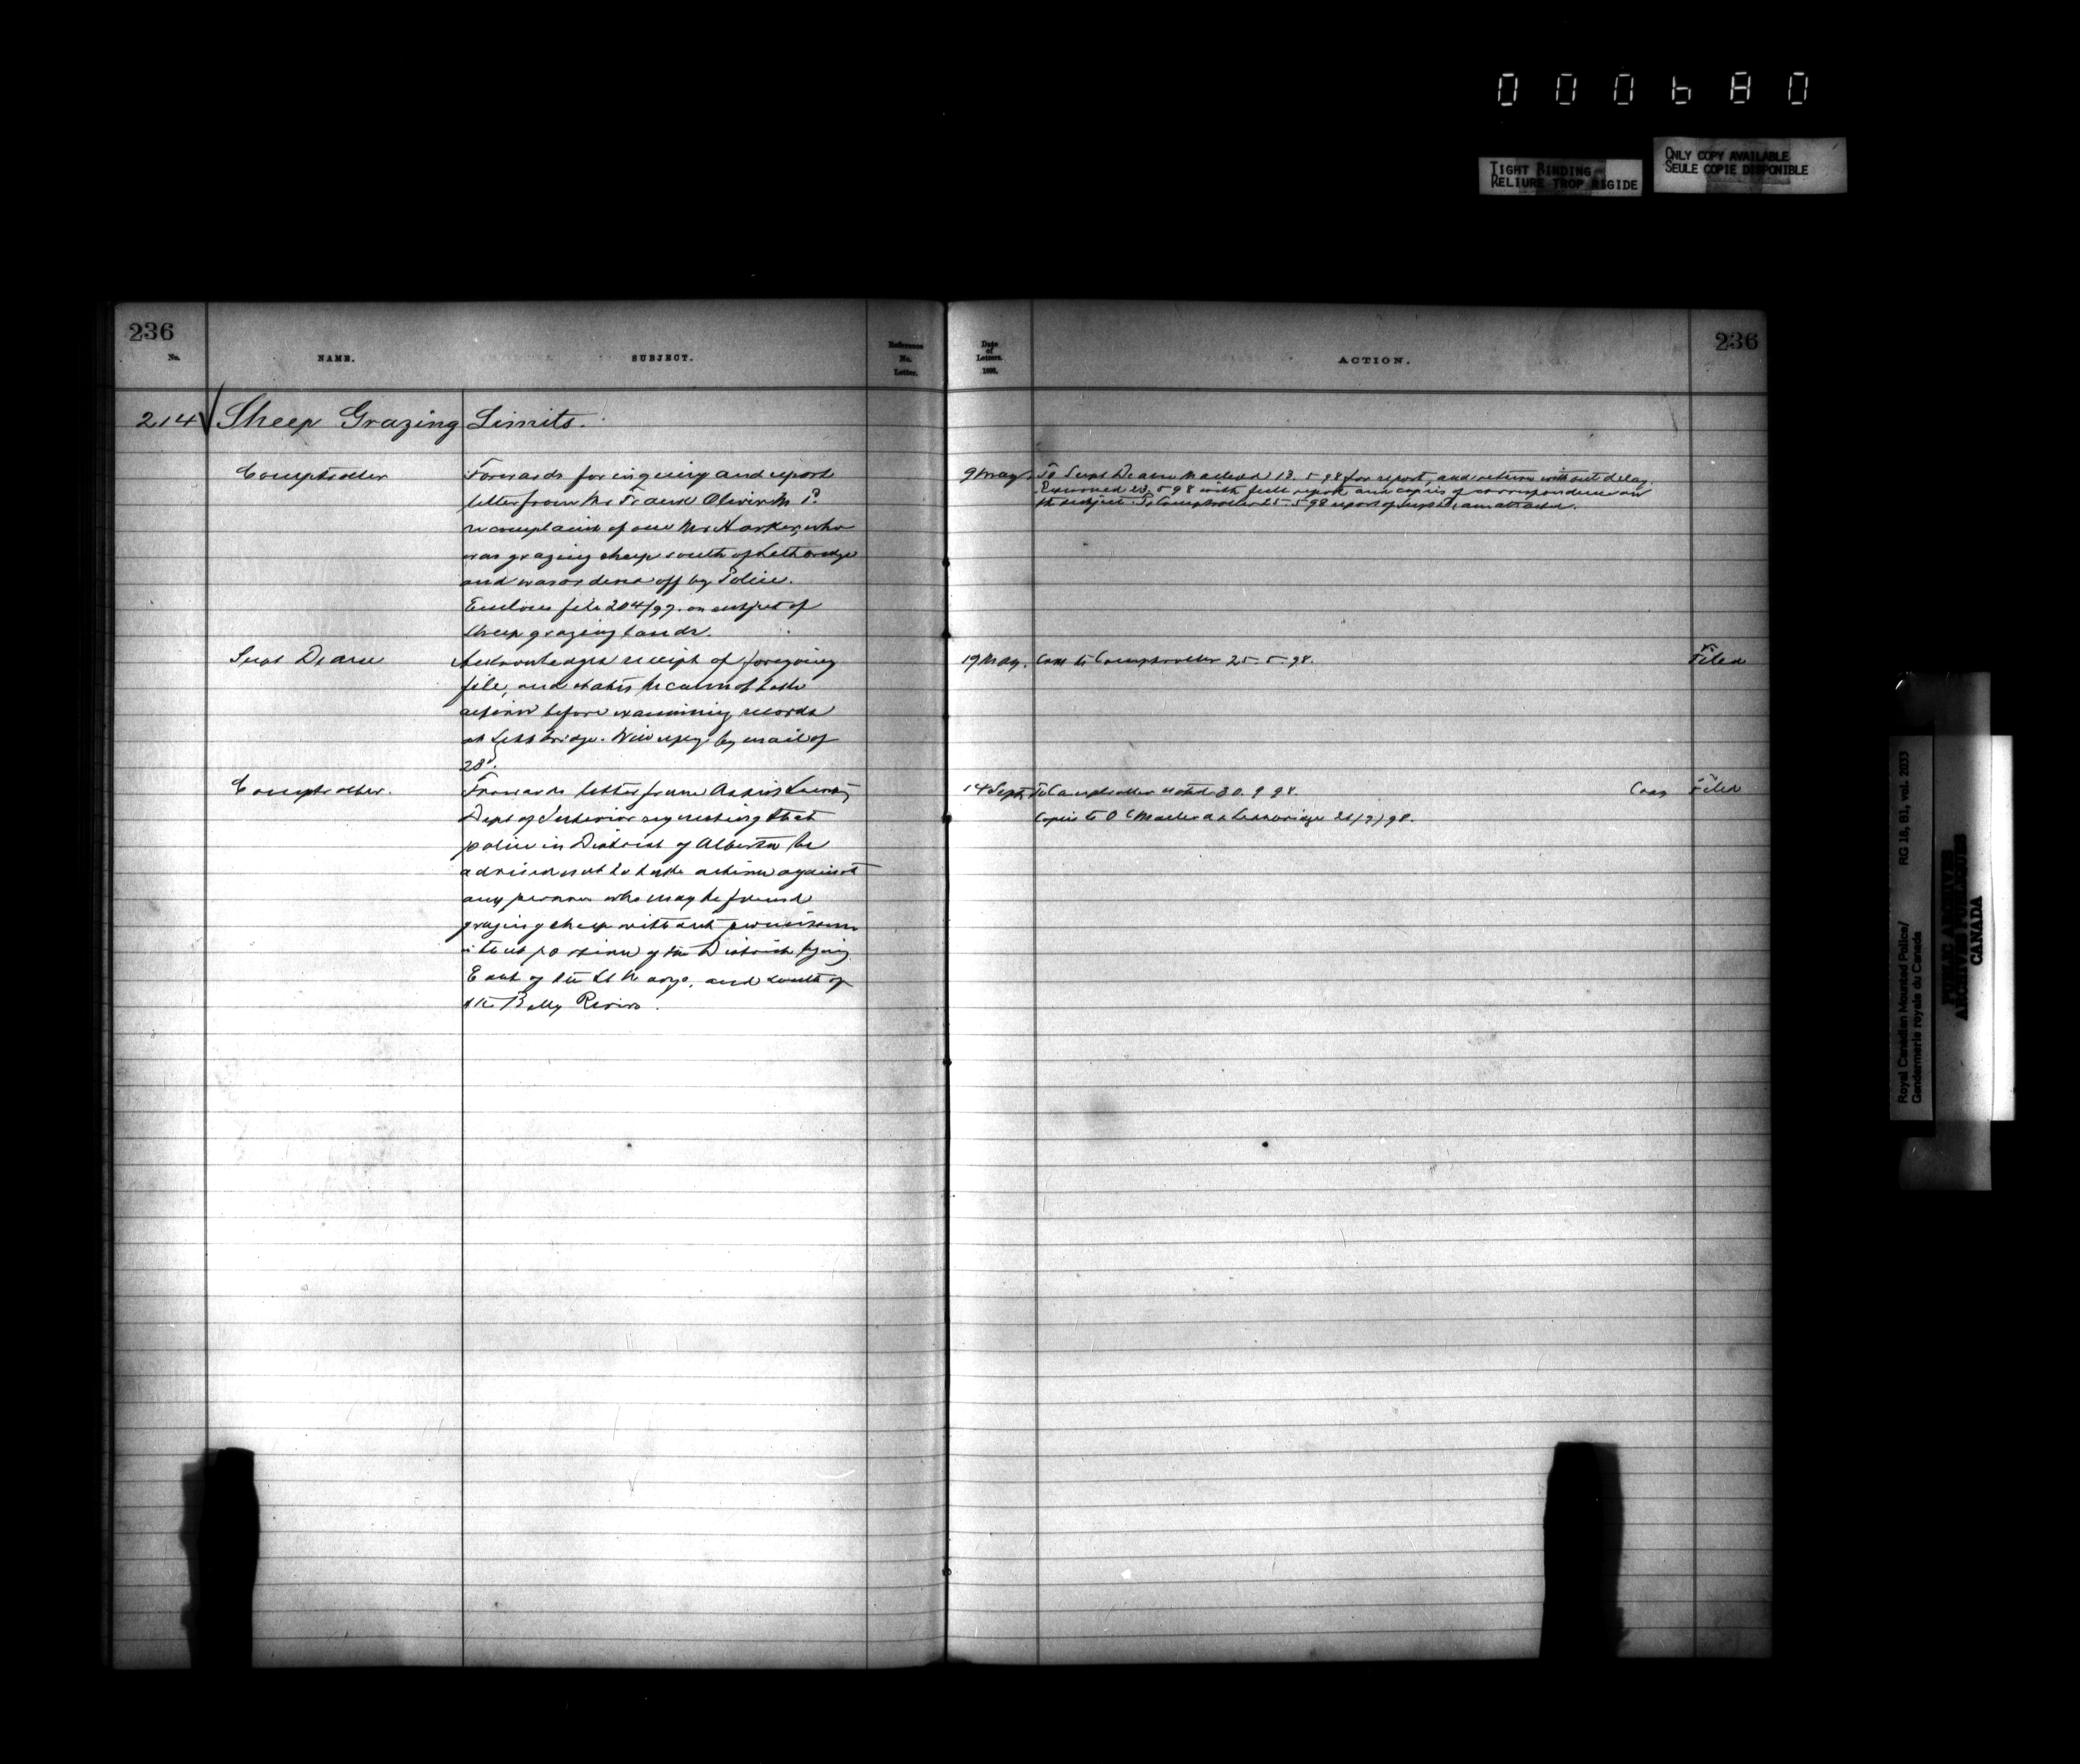 000680
TIGHT BINDING
RELIURE TROP RIGIDE
ONLY COPY AVAILABLE
SEULE COPIE DISPONIBLE
236
No.
NAME.
SUBJECT.
Reference
No.
Letter.
Date
of
Letters.
ACTION.
236
214 Sheep Grazing Limits.
Comptroller
Forwards for inquiry and report
letter from Mr Frank Oliver M P.
re complaint of one Mr Harker, who
was grazing sheep south of Lethbridge
and was ordered off by Police.
Encloses file 204/97. on subject of
Sheep grazing lands.
9 May. To Supt Deane Macleod 13.5 98 for report, and return without delay.
Returned 23.5 98 with full report and copies of correspondence on
the subject. To Comptroller 25.5 98 report of Supt Deane attached.
Supt Deane
Acknowledges receipt of foregoing
file, and states he cannot take
action before examining records
at Lethbridge. Will reply by mail of
23d.
19 May. Copy to Comptroller 25.5.98.
Filed
Comptroller.
Forwards letter from Asst Secrety
Dept of Interior requesting that
police in District of Alberta be
advised not to take action against
any persons who may be found
grazing sheep without permission
in that portion of the District lying
East of the St Marys, and South of
the Belly Rivers.
14 Sept. To Comptroller noted 20.9 98.
Copies to O C Macleod & Lethbridge 21/9/98.
Copy Filed
Royal Canadian Mounted Police/
Gendarmerie royale du Canada
RG 18, B1, vol. 2033
PUBLIC ARCHIVES
ARCHIVES PUBLIQUES
CANADA